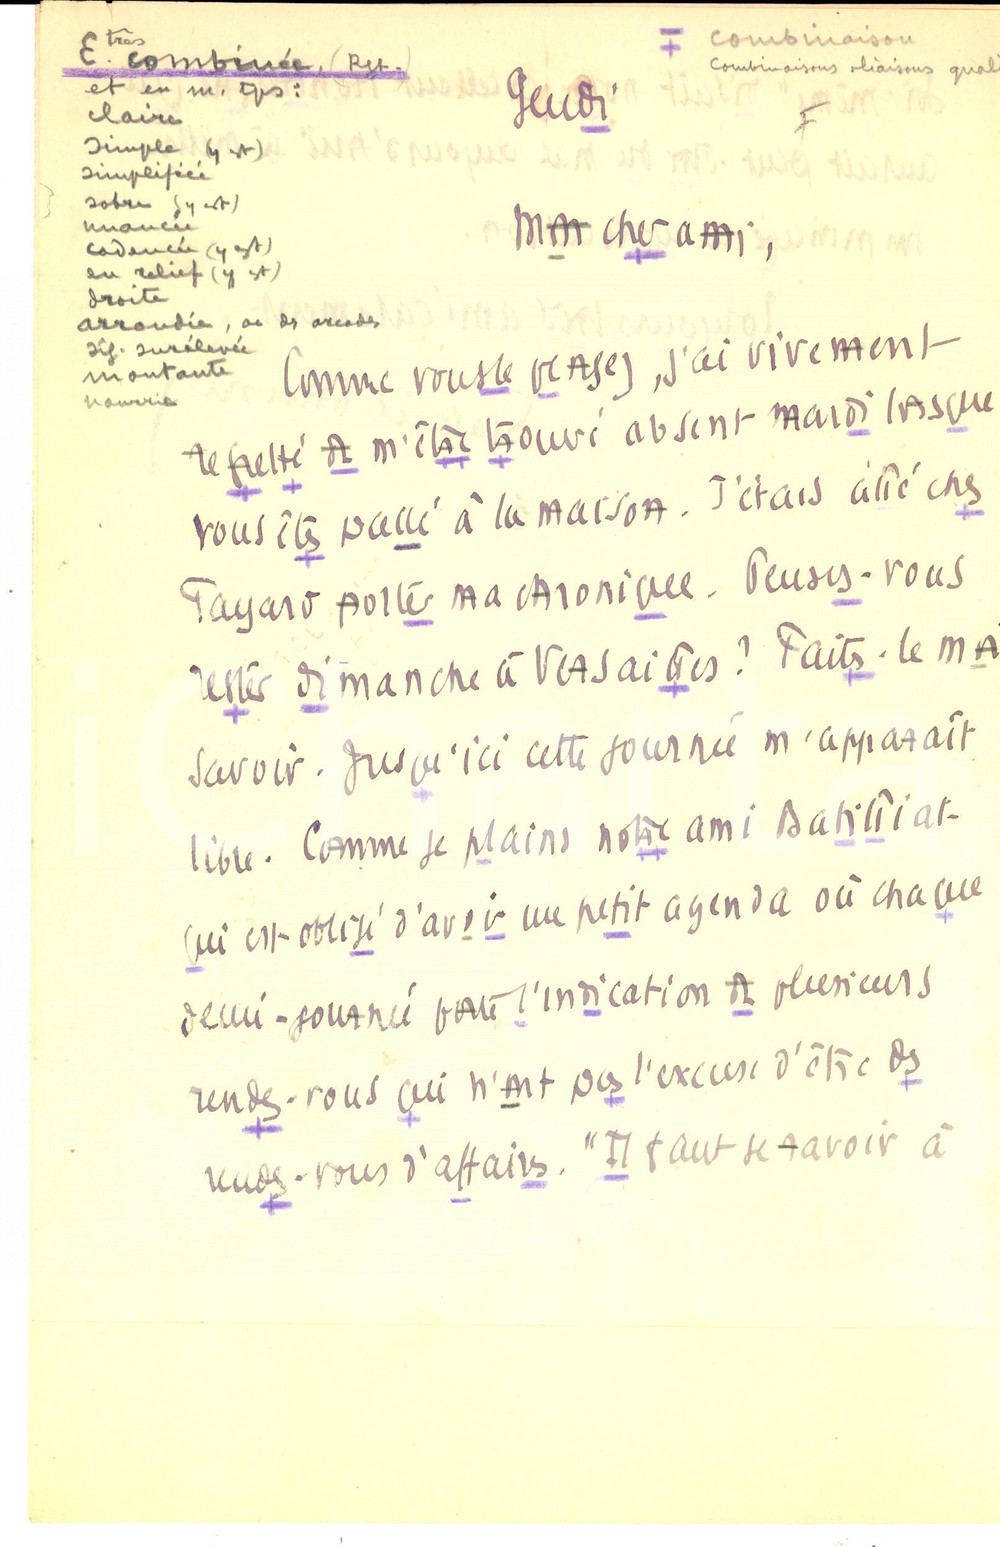 E. très combinée, (Rgt.)
et en m. tps :
claire
simple (y est)
simplifiée
sobre (y est)
nuancée
cadencée (y est)
en relief (y est)
droite
arrondie, ac des arcades
sig. surélevée
montante
nourrie
combinaison
Combinaisons liaisons quali
F
Jeudi
Mon cher ami,
Comme vous le pensez, j'ai vivement
regretté de m'être trouvé absent mardi lorsque
vous êtes passé à la maison. J'étais allé chez
Fayard porter ma chronique. Pensez-vous
rester dimanche à Versailles ? Faites-le moi
savoir. Jusqu'ici cette journée m'apparaît
libre. Comme je plains notre ami Batilliat
qui est obligé d'avoir un petit agenda où chaque
demi-journée porte l'indication de plusieurs
rendez-vous qui n'ont pas l'excuse d'être des
rendez-vous d'affaires. "Il faut se savoir à